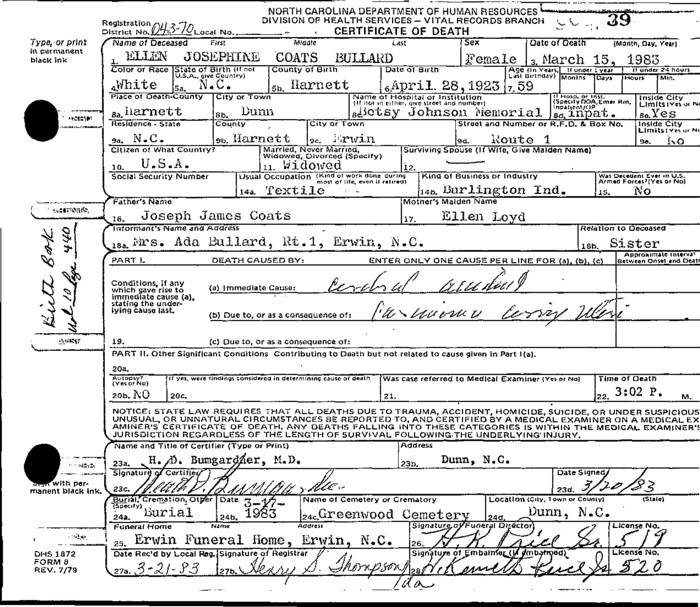 NORTH CAROLINA DEPARTMENT OF HUMAN RESOURCES
DIVISION OF HEALTH SERVICES – VITAL RECORDS BRANCH
39
Registration District No. 043-70 Local No.
CERTIFICATE OF DEATH
Type, or print in permanent black ink
Name of Deceased First Middle Last Sex Date of Death (Month, Day, Year)
1. ELLEN JOSEPHINE COATS BULLARD 2. Female 3. March 15, 1983
Color or Race State of Birth (If not U.S.A., give Country) County of Birth Date of Birth Age (In Years, Last Birthday) If under 1 year Months Days If under 24 hours Hours Min.
4. White 5a. N.C. 5b. Harnett 6. April 28, 1923 7. 59
Place of Death-County City or Town Name of Hospital or Institution (If not in either, give street and number) If Hosp. or Inst. (Specify DOA, Emer Rm, Inpatient) Inside City Limits (Yes or No)
8a. Harnett 8b. Dunn 8c. Betsy Johnson Memorial 8d. inpat. 8e. Yes
Residence - State County City or Town Street and Number or R.F.D. & Box No. Inside City Limits (Yes or No)
9a. N.C. 9b. Harnett 9c. Erwin 9d. Route 1 9e. No
Citizen of What Country? Married, Never Married, Widowed, Divorced (Specify) Surviving Spouse (If Wife, Give Maiden Name)
10. U.S.A. 11. Widowed 12.
Social Security Number Usual Occupation (Kind of work done during most of life, even if retired) Kind of Business or Industry Was Decedent Ever in U.S. Armed Forces? (Yes or No)
14a. Textile 14b. Burlington Ind. 15. No
Father's Name Mother's Maiden Name
16. Joseph James Coats 17. Ellen Loyd
Informant's Name and Address Relation to Deceased
18a. Mrs. Ada Bullard, Rt.1, Erwin, N.C. 18b. Sister
Birth Book
Vol-10 Page 440
PART I. DEATH CAUSED BY: ENTER ONLY ONE CAUSE PER LINE FOR (a), (b), (c) Approximate Interval Between Onset and Death
Conditions, if any which gave rise to immediate cause (a), stating the under-lying cause last.
(a) Immediate Cause: cerebral accident
(b) Due to, or as a consequence of: Carcinoma cervix uteri
19. (c) Due to, or as a consequence of:
PART II. Other Significant Conditions Contributing to Death but not related to cause given in Part I(a).
20a.
Autopsy? (Yes or No) If yes, were findings considered in determining cause of death Was case referred to Medical Examiner (Yes or No) Time of Death
20b. NO 20c. 21. 22. 3:02 P. M.
NOTICE: STATE LAW REQUIRES THAT ALL DEATHS DUE TO TRAUMA, ACCIDENT, HOMICIDE, SUICIDE, OR UNDER SUSPICIOUS
UNUSUAL, OR UNNATURAL CIRCUMSTANCES BE REPORTED TO, AND CERTIFIED BY A MEDICAL EXAMINER ON A MEDICAL EX
AMINER'S CERTIFICATE OF DEATH. ANY DEATHS FALLING INTO THESE CATEGORIES IS WITHIN THE MEDICAL EXAMINER'S
JURISDICTION REGARDLESS OF THE LENGTH OF SURVIVAL FOLLOWING THE UNDERLYING INJURY.
Name and Title of Certifier (Type or Print) Address
23a. H. D. Bumgardner, M.D. 23b. Dunn, N.C.
Signature of Certifier Date Signed
23c. 23d. 3/20/83
Sign with permanent black ink.
Burial, Cremation, Other (Specify) Date Name of Cemetery or Crematory Location (City, Town or County) (State)
24a. Burial 24b. 3-17-1983 24c. Greenwood Cemetery 24d. Dunn, N.C.
Funeral Home Name Address Signature of Funeral Director License No.
25. Erwin Funeral Home, Erwin, N.C. 26. H.K. Price Sr. 519
Date Rec'd by Local Reg. Signature of Registrar Signature of Embalmer (If embalmed) License No.
27a. 3-21-83 27b. Henry S. Thompson 28. H. Kenneth Price Jr 520
/da
DHS 1872
FORM 8
REV. 7/79